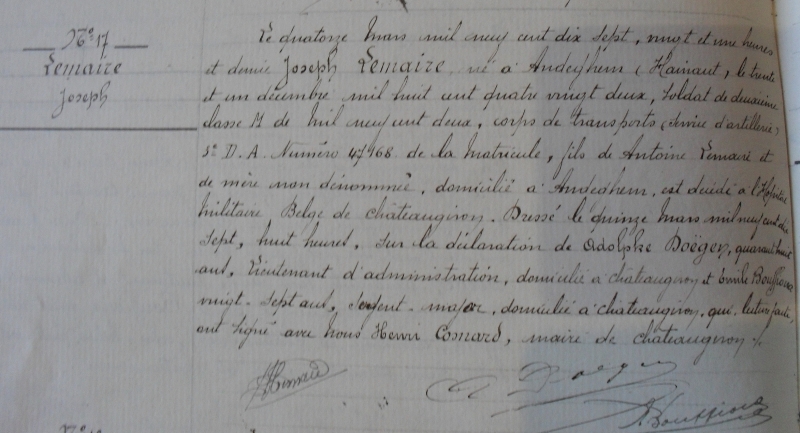 N° 17
Lemaire
Joseph
Le quatorze Mars mil neuf cent dix sept, vingt et une heures
et demie Joseph Lemaire, né à Andeghem (Hainaut, le trente
et un décembre mil huit cent quatre vingt deux, soldat de deuxième
classe M de mil neuf cent deux, corps de transports (service d'artillerie)
5e D.A. Numéro 47168 de la matricule, fils de Antoine Lemaire et
de mère non dénommée, domicilié à Andeghem, est décédé à l'Hôpital
militaire Belge de Châteaugiron. Dressé le quinze Mars mil neuf cent dix
sept, huit heures, sur la déclaration de Adolphe Doëgen, quarante huit
ans, Lieutenant d'administration, domicilié à Châteaugiron et Emile Bouffioux
vingt-sept ans, sergent-major, domicilié à Châteaugiron, qui, lecture faite,
ont signé avec nous Henri Cosnard, maire de Châteaugiron ./.
A Doëgen
Bouffioux
N°